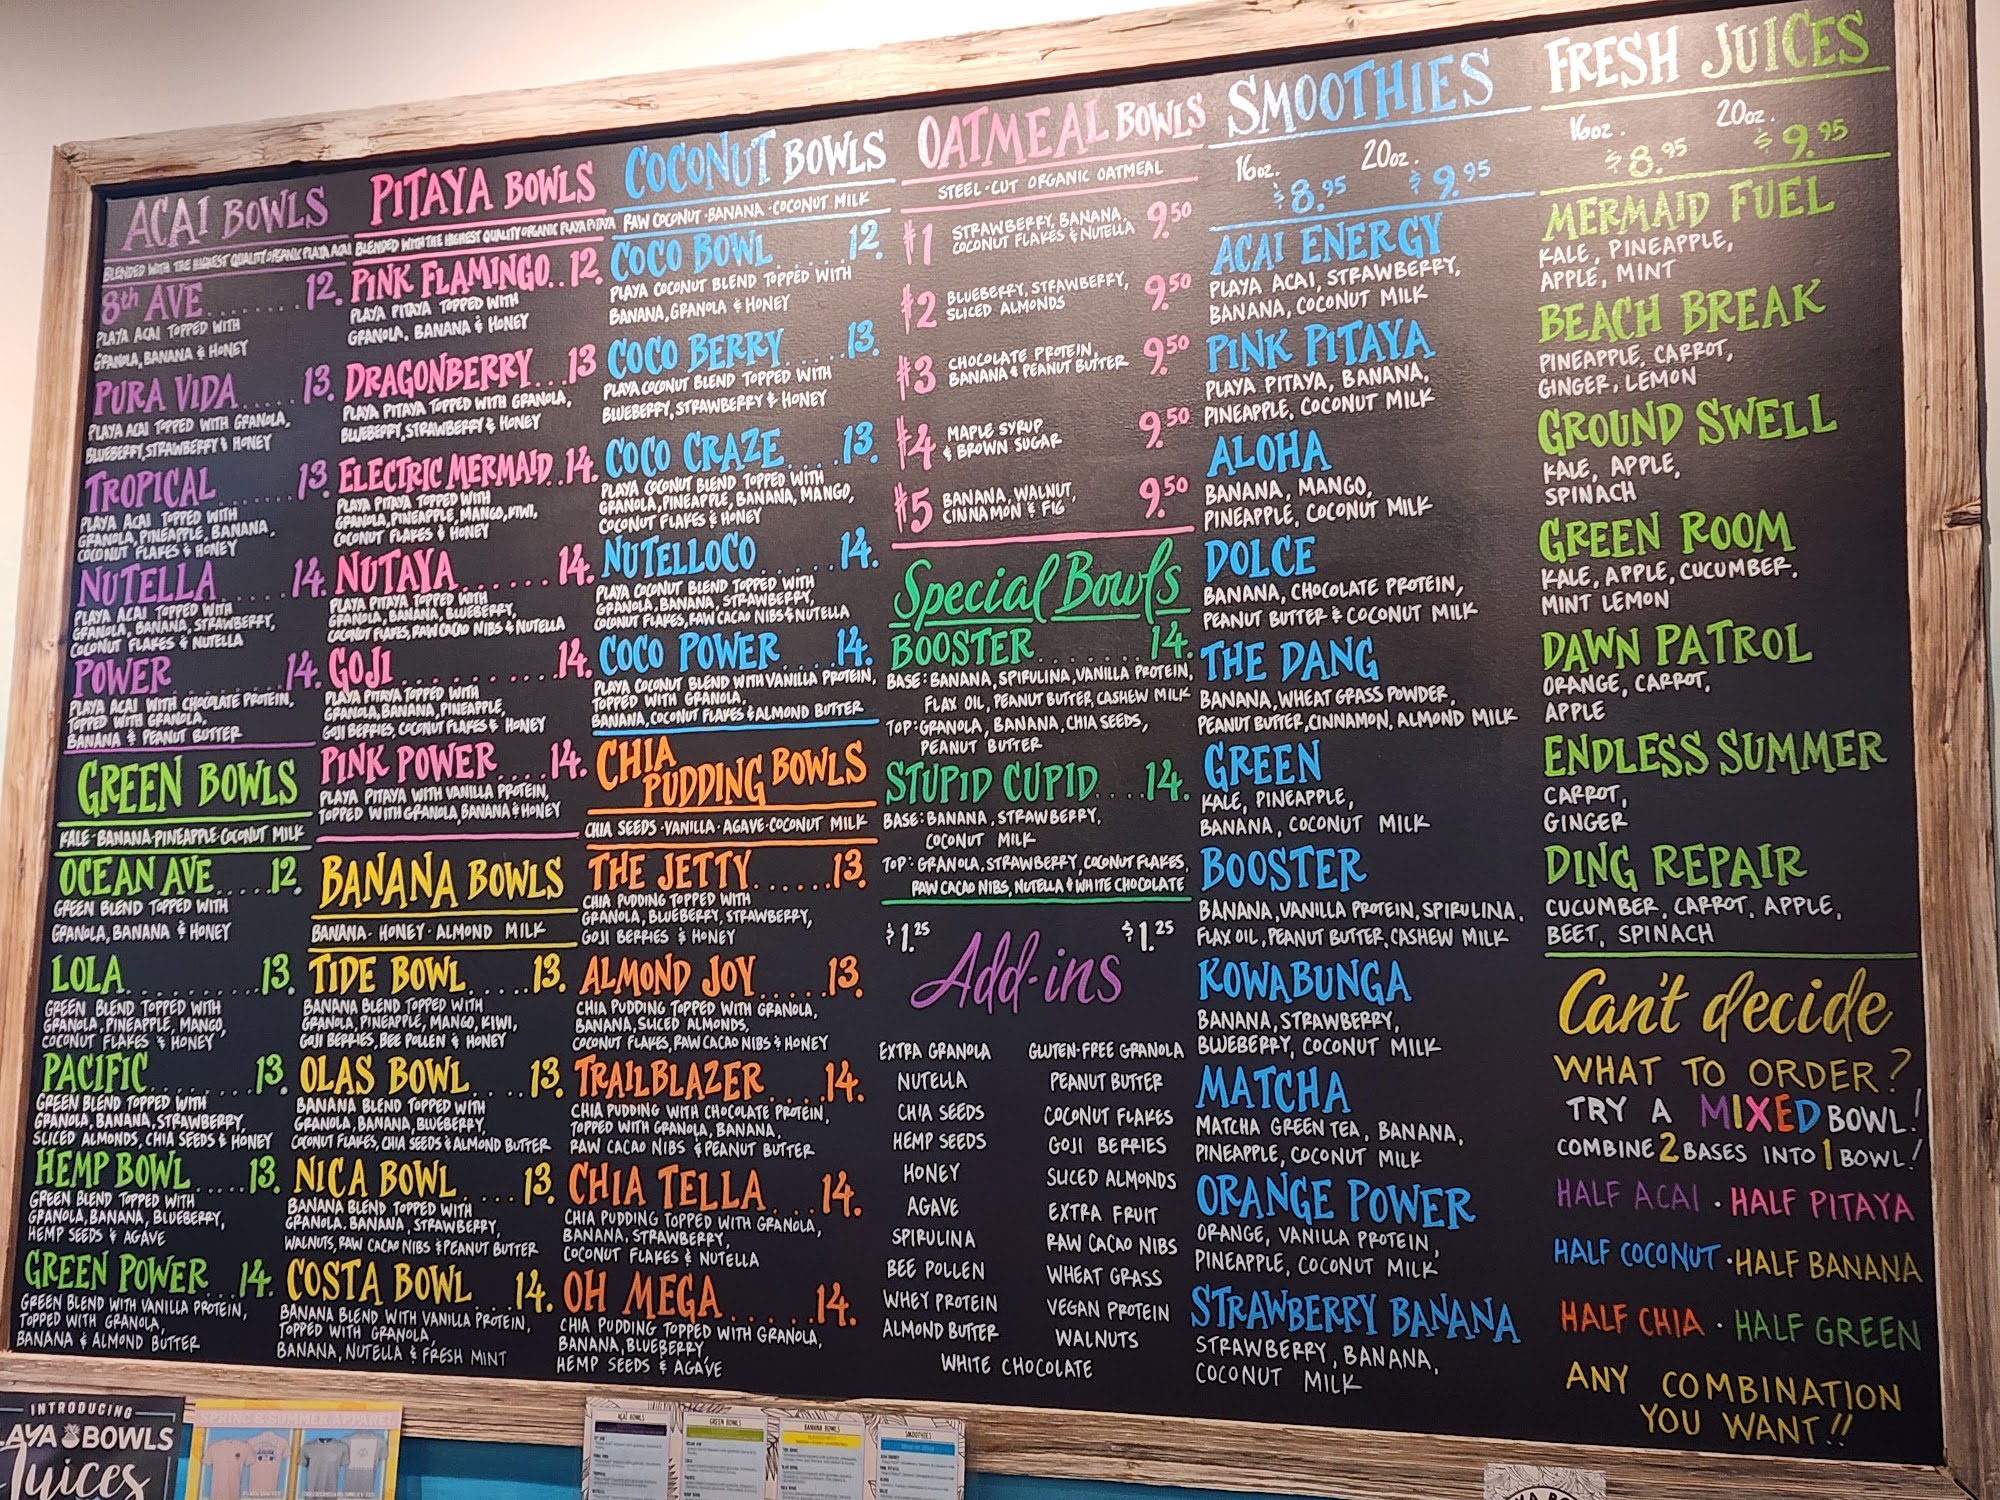 ACAI BOWLS
BLENDED WITH THE HIGHEST QUALITY ORGANIC PLAYA ACAI
8th AVE........12.
PLAYA ACAI TOPPED WITH
GRANOLA, BANANA & HONEY
PURA VIDA......13.
PLAYA ACAI TOPPED WITH GRANOLA,
BLUEBERRY, STRAWBERRY & HONEY
TROPICAL.......13.
PLAYA ACAI TOPPED WITH
GRANOLA, PINEAPPLE, BANANA,
COCONUT FLAKES & HONEY
NUTELLA........14.
PLAYA ACAI TOPPED WITH
GRANOLA, BANANA, STRAWBERRY,
COCONUT FLAKES & NUTELLA
POWER..........14.
PLAYA ACAI WITH CHOCOLATE PROTEIN,
TOPPED WITH GRANOLA,
BANANA & PEANUT BUTTER
GREEN BOWLS
KALE·BANANA·PINEAPPLE·COCONUT MILK
OCEAN AVE.....12.
GREEN BLEND TOPPED WITH
GRANOLA, BANANA & HONEY
LOLA..........13.
GREEN BLEND TOPPED WITH
GRANOLA, PINEAPPLE, MANGO,
COCONUT FLAKES & HONEY
PACIFIC.......13.
GREEN BLEND TOPPED WITH
GRANOLA, BANANA, STRAWBERRY,
SLICED ALMONDS, CHIA SEEDS & HONEY
HEMP BOWL.....13.
GREEN BLEND TOPPED WITH
GRANOLA, BANANA, BLUEBERRY,
HEMP SEEDS & AGAVE
GREEN POWER...14.
GREEN BLEND WITH VANILLA PROTEIN,
TOPPED WITH GRANOLA,
BANANA & ALMOND BUTTER
PITAYA BOWLS
BLENDED WITH THE HIGHEST QUALITY ORGANIC PLAYA PITAYA
PINK FLAMINGO..12.
PLAYA PITAYA TOPPED WITH
GRANOLA, BANANA & HONEY
DRAGONBERRY...13
PLAYA PITAYA TOPPED WITH GRANOLA,
BLUEBERRY, STRAWBERRY & HONEY
ELECTRIC MERMAID..14.
PLAYA PITAYA TOPPED WITH
GRANOLA, PINEAPPLE, MANGO, KIWI,
COCONUT FLAKES & HONEY
NUTAYA.......14.
PLAYA PITAYA TOPPED WITH
GRANOLA, BANANA, BLUEBERRY,
COCONUT FLAKES, RAW CACAO NIBS & NUTELLA
GOJI..........14.
PLAYA PITAYA TOPPED WITH
GRANOLA, BANANA, PINEAPPLE,
GOJI BERRIES, COCONUT FLAKES & HONEY
PINK POWER....14.
PLAYA PITAYA WITH VANILLA PROTEIN,
TOPPED WITH GRANOLA, BANANA & HONEY
BANANA BOWLS
BANANA·HONEY·ALMOND MILK
TIDE BOWL.....13.
BANANA BLEND TOPPED WITH
GRANOLA, PINEAPPLE, MANGO, KIWI,
GOJI BERRIES, BEE POLLEN & HONEY
OLAS BOWL....13.
BANANA BLEND TOPPED WITH
GRANOLA, BANANA, BLUEBERRY,
COCONUT FLAKES, CHIA SEEDS & ALMOND BUTTER
NICA BOWL....13.
BANANA BLEND TOPPED WITH
GRANOLA. BANANA, STRAWBERRY,
WALNUTS, RAW CACAO NIBS & PEANUT BUTTER
COSTA BOWL...14.
BANANA BLEND WITH VANILLA PROTEIN,
TOPPED WITH GRANOLA,
BANANA, NUTELLA & FRESH MINT
COCONUT BOWLS
RAW COCONUT·BANANA·COCONUT MILK
COCO BOWL 12.
PLAYA COCONUT BLEND TOPPED WITH
BANANA, GRANOLA & HONEY
COCO BERRY.....13.
PLAYA COCONUT BLEND TOPPED WITH
BLUEBERRY, STRAWBERRY & HONEY
COCO CRAZE....13.
PLAYA COCONUT BLEND TOPPED WITH
GRANOLA, PINEAPPLE, BANANA, MANGO,
COCONUT FLAKES & HONEY
NUTELLOCO.....14.
PLAYA COCONUT BLEND TOPPED WITH
GRANOLA, BANANA, STRAWBERRY,
COCONUT FLAKES, RAW CACAO NIBS & NUTELLA
COCO POWER....14.
PLAYA COCONUT BLEND WITH VANILLA PROTEIN,
TOPPED WITH GRANOLA,
BANANA, COCONUT FLAKES & ALMOND BUTTER
CHIA PUDDING BOWLS
CHIA SEEDS·VANILLA·AGAVE·COCONUT MILK
THE JETTY......13.
CHIA PUDDING TOPPED WITH
GRANOLA, BLUEBERRY, STRAWBERRY,
GOJI BERRIES & HONEY
ALMOND JOY.....13.
CHIA PUDDING TOPPED WITH GRANOLA,
BANANA, SLICED ALMONDS,
COCONUT FLAKES, RAW CACAO NIBS & HONEY
TRAILBLAZER....14.
CHIA PUDDING WITH CHOCOLATE PROTEIN,
TOPPED WITH GRANOLA, BANANA,
RAW CACAO NIBS & PEANUT BUTTER
CHIA TELLA....14.
CHIA PUDDING TOPPED WITH GRANOLA,
BANANA, STRAWBERRY,
COCONUT FLAKES & NUTELLA
OH MEGA......14.
CHIA PUDDING TOPPED WITH GRANOLA,
BANANA, BLUEBERRY,
HEMP SEEDS & AGAVE
OATMEAL BOWLS
STEEL-CUT ORGANIC OATMEAL
#1 STRAWBERRY, BANANA, 9.50
COCONUT FLAKES & NUTELLA
#2 BLUEBERRY, STRAWBERRY, 9.50
SLICED ALMONDS
#3 CHOCOLATE PROTEIN, 9.50
BANANA & PEANUT BUTTER
#4 MAPLE SYRUP 9.50
& BROWN SUGAR
#5 BANANA, WALNUT, 9.50
CINNAMON & FIG
Special Bowls
BOOSTER.......14.
BASE: BANANA, SPIRULINA, VANILLA PROTEIN,
FLAX OIL, PEANUT BUTTER, CASHEW MILK
TOP: GRANOLA, BANANA, CHIA SEEDS,
PEANUT BUTTER
STUPID CUPID....14.
BASE: BANANA, STRAWBERRY,
COCONUT MILK
TOP: GRANOLA, STRAWBERRY, COCONUT FLAKES,
RAW CACAO NIBS, NUTELLA & WHITE CHOCOLATE
$1.25 $1.25
Add-ins
EXTRA GRANOLA GLUTEN-FREE GRANOLA
NUTELLA PEANUT BUTTER
CHIA SEEDS COCONUT FLAKES
HEMP SEEDS GOJI BERRIES
HONEY SLICED ALMONDS
AGAVE EXTRA FRUIT
SPIRULINA RAW CACAO NIBS
BEE POLLEN WHEAT GRASS
WHEY PROTEIN VEGAN PROTEIN
ALMOND BUTTER WALNUTS
WHITE CHOCOLATE
SMOOTHIES
16oz. 20oz.
$8.95 $9.95
ACAI ENERGY
PLAYA ACAI, STRAWBERRY,
BANANA, COCONUT MILK
PINK PITAYA
PLAYA PITAYA, BANANA,
PINEAPPLE, COCONUT MILK
ALOHA
BANANA, MANGO,
PINEAPPLE, COCONUT MILK
DOLCE
BANANA, CHOCOLATE PROTEIN,
PEANUT BUTTER & COCONUT MILK
THE DANG
BANANA, WHEAT GRASS POWDER,
PEANUT BUTTER, CINNAMON, ALMOND MILK
GREEN
KALE, PINEAPPLE,
BANANA, COCONUT MILK
BOOSTER
BANANA, VANILLA PROTEIN, SPIRULINA,
FLAX OIL, PEANUT BUTTER, CASHEW MILK
KOWABUNGA
BANANA, STRAWBERRY,
BLUEBERRY, COCONUT MILK
MATCHA
MATCHA GREEN TEA, BANANA,
PINEAPPLE, COCONUT MILK
ORANGE POWER
ORANGE, VANILLA PROTEIN,
PINEAPPLE, COCONUT MILK
STRAWBERRY BANANA
STRAWBERRY, BANANA,
COCONUT MILK
FRESH JUICES
16oz. 20oz.
$8.95 $9.95
MERMAID FUEL
KALE, PINEAPPLE,
APPLE, MINT
BEACH BREAK
PINEAPPLE, CARROT,
GINGER, LEMON
GROUND SWELL
KALE, APPLE,
SPINACH
GREEN ROOM
KALE, APPLE, CUCUMBER.
MINT LEMON
DAWN PATROL
ORANGE, CARROT,
APPLE
ENDLESS SUMMER
CARROT,
GINGER
DING REPAIR
CUCUMBER, CARROT, APPLE,
BEET, SPINACH
Can't decide
WHAT TO ORDER?
TRY A MIXED BOWL!
COMBINE 2 BASES INTO 1 BOWL!
HALF ACAI · HALF PITAYA
HALF COCONUT · HALF BANANA
HALF CHIA · HALF GREEN
ANY COMBINATION
YOU WANT!!
INTRODUCING
LAYA BOWLS
Juices
SPRING & SUMMER APPAREL
ACAI BOWLS
GREEN BOWLS
BANANA BOWLS
SMOOTHIES